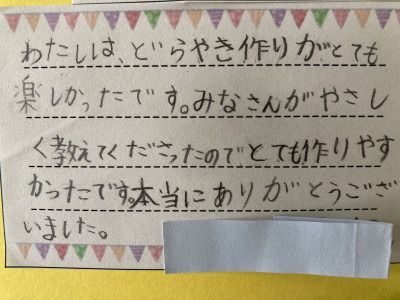 わたしは、どらやき作りがとても
楽しかったです。みなさんがやさし
く教えてくださったのでとても作りやす
かったです。本当にありがとうござ
いました。